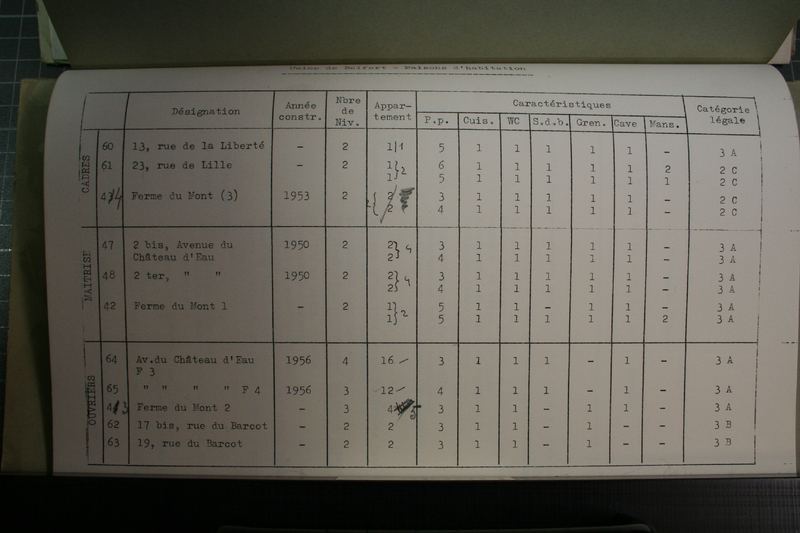 Usine de Belfort - Maisons d'habitation
Désignation Année constr. Nbre de Niv. Appar-tement Caractéristiques Catégorie légale
P.p. Cuis. WC S.d.b. Gren. Cave Mans.
CADRES
60 13, rue de la Liberté - 2 1 | 1 5 1 1 1 1 1 - 3 A
61 23, rue de Lille - 2 1 } 2 6 1 1 1 1 1 2 2 C
1 5 1 1 1 1 1 1 2 C
Ferme du Mont (3) 1953 2 2 3 1 1 1 1 1 - 2 C
2 4 1 1 1 1 1 - 2 C
MAITRISE
47 2 bis, Avenue du 1950 2 2 } 4 3 1 1 1 1 1 - 3 A
Château d'Eau 2 4 1 1 1 1 1 - 3 A
48 2 ter, " " 1950 2 2 } 4 3 1 1 1 1 1 - 3 A
2 4 1 1 1 1 1 - 3 A
42 Ferme du Mont 1 - 2 1 } 2 5 1 1 - 1 1 - 3 A
1 5 1 1 1 1 1 2 3 A
OUVRIERS
64 Av.du Château d'Eau 1956 4 16 - 3 1 1 1 - 1 - 3 A
F 3
65 " " " " F 4 1956 3 12 - 4 1 1 1 - 1 - 3 A
Ferme du Mont 2 - 3 4 5 3 1 1 - 1 1 - 3 A
62 17 bis, rue du Barcot - 2 2 3 1 1 - 1 - - 3 B
63 19, rue du Barcot - 2 2 3 1 1 - 1 - - 3 B